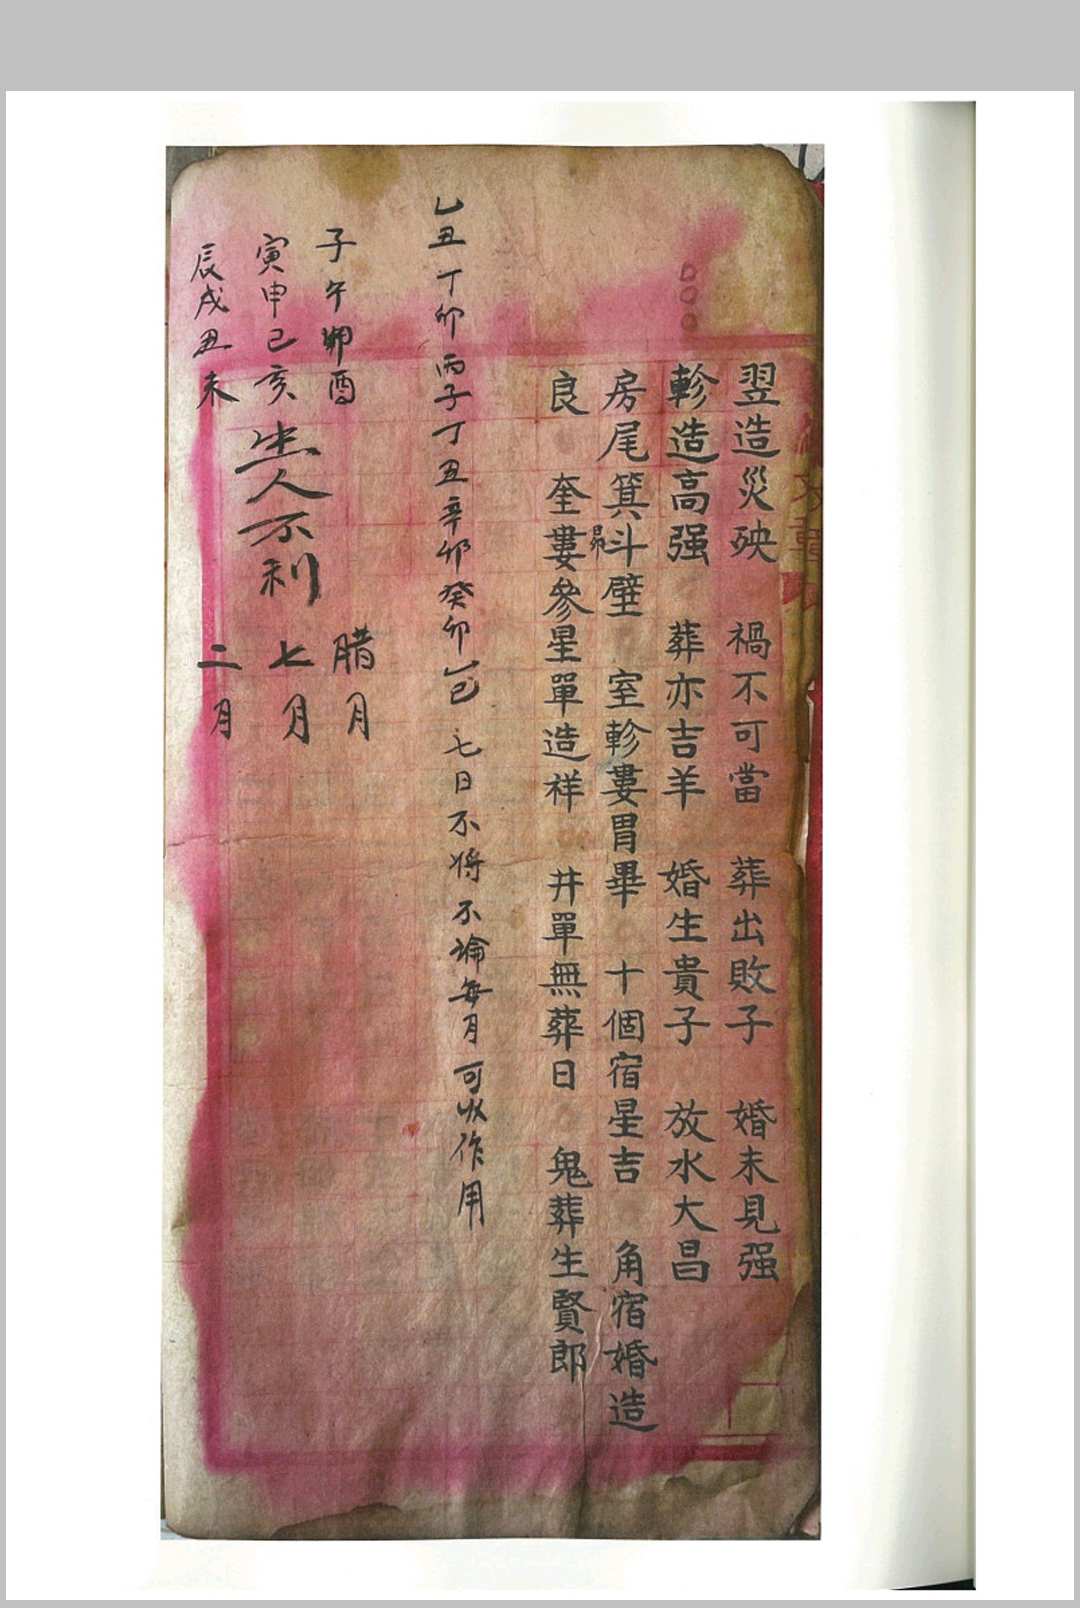 翌造災殃　禍不可當　葬出敗子　婚末見强
軫造高强　葬亦吉羊　婚生貴子　放水大昌
房尾箕斗壁　室軫婁胃畢　十個宿星吉　角宿婚造
昴
良　奎婁參星單造祥　井單無葬日　鬼葬生賢郎
乙丑丁卯丙子丁丑辛卯癸卯乙巳　七日不將不論每月可以作用
子午卯酉　腊月
寅申巳亥　七月
生人不利
辰戌丑未　二月